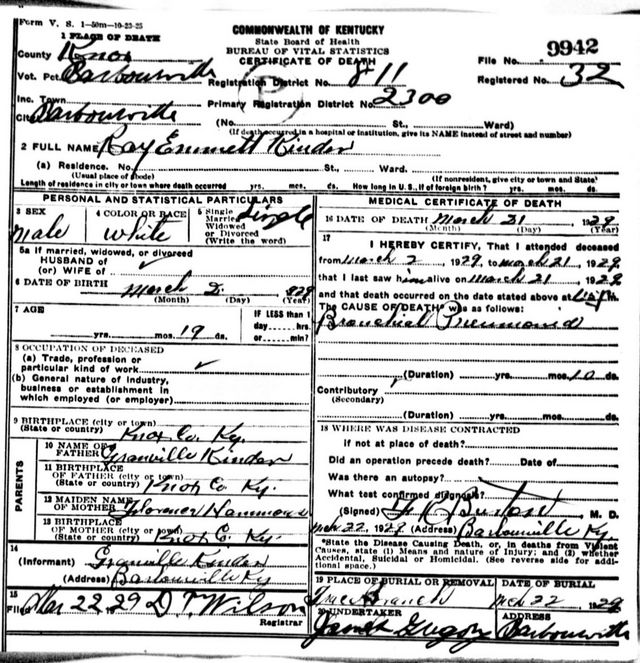 Form V. S. 1-50m-10-23-25
COMMONWEALTH OF KENTUCKY
State Board of Health
BUREAU OF VITAL STATISTICS
CERTIFICATE OF DEATH
1 PLACE OF DEATH
County Knox
Vot. Pct. Barbourville
Inc. Town
City Barbourville
Registration District No. 811
Primary Registration District No. 2300
File No. 9942
Registered No. 32
(No. St., Ward)
(If death occurred in a hospital or institution, give its NAME instead of street and number)
2 FULL NAME Ray Emmett Kinder
(a) Residence. No. St., Ward.
(Usual place of abode) (If nonresident, give city or town and State)
Length of residence in city or town where death occurred yrs. mos. ds. How long in U. S., if of foreign birth? yrs. mos. ds.
PERSONAL AND STATISTICAL PARTICULARS
3 SEX
male
4 COLOR OR RACE
white
5 Single
Married
Widowed
or Divorced
(Write the word)
Single
5a If married, widowed, or divorced
HUSBAND OF
(or) WIFE of
6 DATE OF BIRTH March 2 929
(Month) (Day) (Year)
7 AGE
yrs. mos. 19 ds.
IF LESS than 1
day hrs.
or min?
8 OCCUPATION OF DECEASED
(a) Trade, profession or
particular kind of work
(b) General nature of industry,
business or establishment in
which employed (or employer)
9 BIRTHPLACE (city or town)
(State or country) Knox Co. Ky.
PARENTS
10 NAME OF
FATHER Granville Kinder
11 BIRTHPLACE
OF FATHER (city or town)
(State or country) Knox Co Ky.
12 MAIDEN NAME
OF MOTHER Florence Hammons
13 BIRTHPLACE
OF MOTHER (city or town)
(State or country) Knox Co. Ky.
14
(Informant) Granville Kinder
(Address) Barbourville Ky
15
Filed Mar 22 29 D T Wilson
Registrar
MEDICAL CERTIFICATE OF DEATH
16 DATE OF DEATH March 21 1929
(Month) (Day) (Year)
17
I HEREBY CERTIFY, That I attended deceased
from March 2 1929, to March 21, 1929
that I last saw him alive on March 21 1929
and that death occurred on the date stated above at
The CAUSE OF DEATH* was as follows:
Bronchial Pneumonia
(Duration) yrs. mos. 10 ds.
Contributory
(Secondary)
(Duration) yrs. mos. ds.
18 WHERE WAS DISEASE CONTRACTED
if not at place of death?
Did an operation precede death? Date of
Was there an autopsy?
What test confirmed diagnosis?
(Signed) M. D.
Mch 22, 1929 (Address) Barbourville Ky.
*State the Disease Causing Death, or, in deaths from Violent
Causes, state (1) Means and nature of Injury; and (2) whether
Accidental, Suicidal or Homicidal. (See reverse side for addi-
tional space.)
19 PLACE OF BURIAL OR REMOVAL
Branch
DATE OF BURIAL
Mch 22 1929
20 UNDERTAKER
James Gregory
ADDRESS
Barbourville